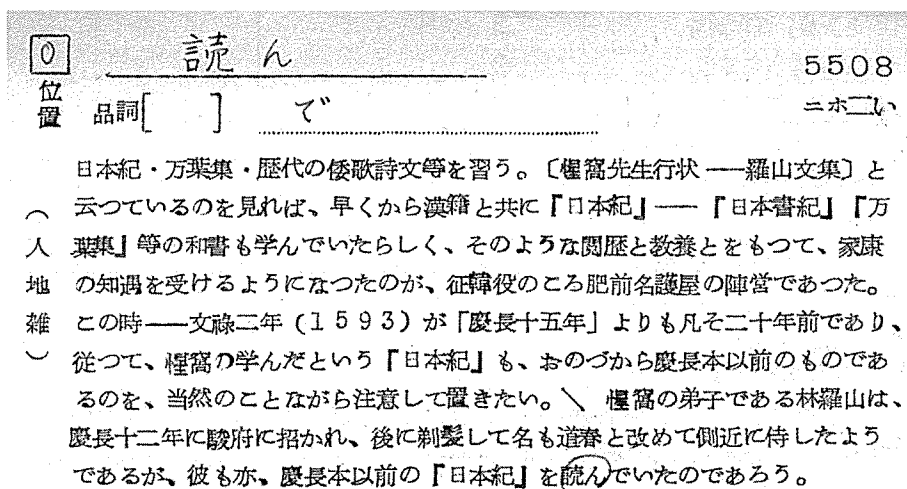 0 読ん 5508
位置 品詞[ ] で ニホ二い
日本紀・万葉集・歴代の倭歌詩文等を習う。〔惺窩先生行状――羅山文集〕と
云つているのを見れば、早くから漢籍と共に『日本紀』――『日本書紀』『万
葉集』等の和書も学んでいたらしく、そのような閲歴と教養とをもつて、家康
の知遇を受けるようになつたのが、征韓役のころ肥前名護屋の陣営であつた。
この時――文禄二年(1593)が「慶長十五年」よりも凡そ二十年前であり、
従つて、惺窩の学んだという『日本紀』も、おのづから慶長本以前のものであ
るのを、当然のことながら注意して置きたい。\ 惺窩の弟子である林羅山は、
慶長十二年に駿府に招かれ、後に剃髪して名も道春と改めて側近に侍したよう
であるが、彼も亦、慶長本以前の『日本紀』を読んでいたのであろう。
(人地雑)